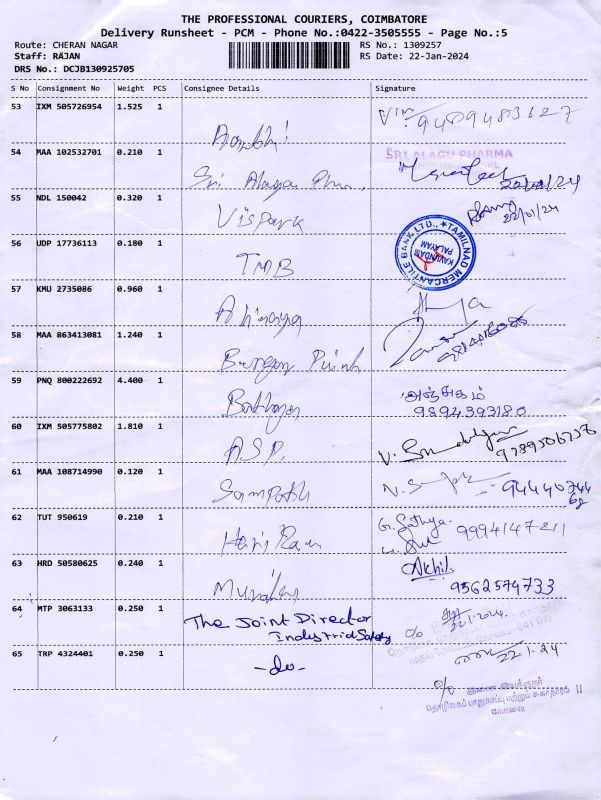 THE PROFESSIONAL COURIERS, COIMBATORE
Delivery Runsheet - PCM - Phone No.:0422-3505555 - Page No.:5
Route: CHERAN NAGAR RS No.: 1309257
Staff: RAJAN RS Date: 22-Jan-2024
DRS No.: DCJB130925705
S No Consignment No Weight PCS Consignee Details Signature
53 IXM 505726954 1.525 1
9489483627
54 MAA 102532701 0.210 1
SRI ALAGU PHARMA
Sri Alagu 22/01/24
55 NDL 150042 0.320 1
Vispark 22/01/24
56 UDP 17736113 0.180 1
TAMILNAD MERCANTILE BANK LTD.,
KAVUNDAM PALAYAM
TMB
57 KMU 2735086 0.960 1
Abinaya
58 MAA 863413081 1.240 1
59 PNQ 800222692 4.400 1
அஞ்சுகம்
9894393180
60 IXM 505775802 1.810 1
ASP.
61 MAA 108714990 0.120 1
Sampath
62 TUT 950619 0.210 1
G. Sathya
Hari Ram 9994147211
63 HRD 50580625 0.240 1
Akhil
Murali 9562574733
64 MTP 3063133 0.250 1
The Joint Director
Industrial Safety
22/1/2024
65 TRP 4324401 0.250 1
-do- 22.1.24
இணை இயக்குநர்
தொழிலகப் பாதுகாப்பு மற்றும் சுகாதாரம் II
கோவை